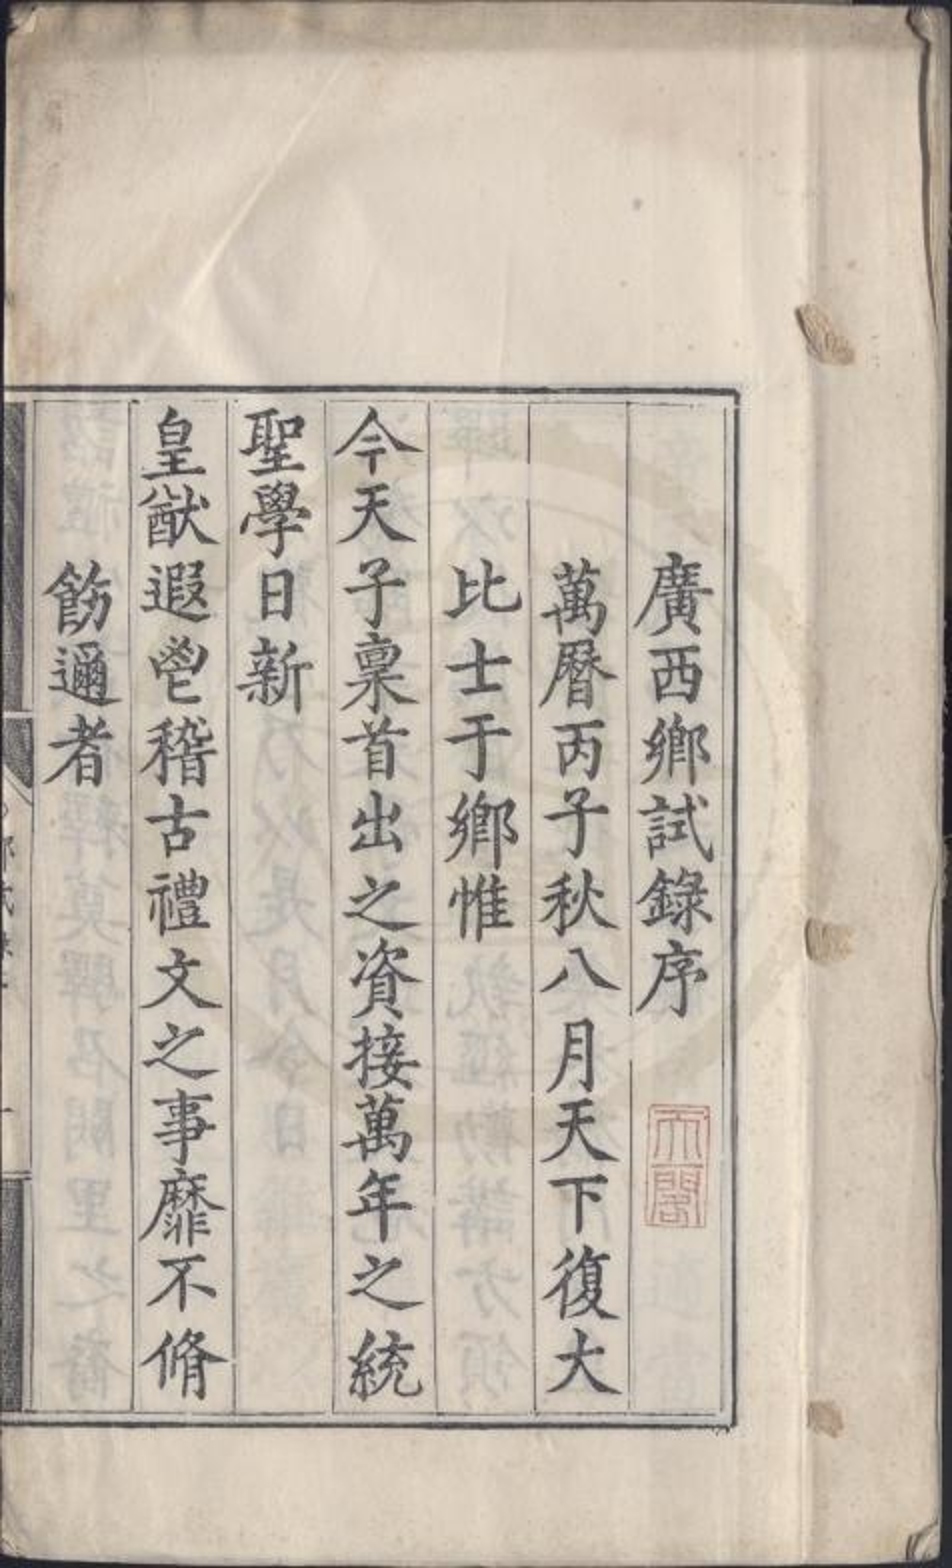 廣西鄉試錄序
天閣
萬曆丙子秋八月天下復大
比士于鄉惟
今天子稟首出之資接萬年之統
聖學日新
皇猷遐鬯稽古禮文之事靡不脩
飭邇者